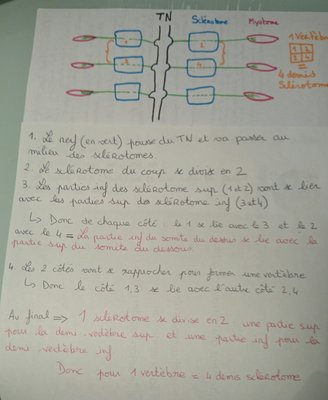 TN
Sclérotome
Myotome
1 Vertèbre
1 2
3 4
=
4 demis
Sclérotome
1 2
3 4
1. Le nerf (en vert) pousse du TN et va passer au
milieu des sclérotomes.
2. Le sclérotome du coup se divise en 2
3. Les parties inf des sclérotome sup (1 et 2) vont se lier
avec les parties sup des sclérotome inf (3 et 4)
↳ Donc de chaque côté : le 1 se lie avec le 3 et le 2
avec le 4 = La partie inf du somite du dessus se lie avec la
partie sup du somite du dessous.
4. Les 2 côtés vont se rapprocher pour former une vertèbre
↳ Donc le côté 1,3 se lie avec l'autre côté 2,4
Au final => 1 sclérotome se divise en 2 : une partie sup
pour la demi-vertèbre sup et une partie inf pour la
demi-vertèbre inf
Donc pour 1 vertèbre = 4 demis sclérotome